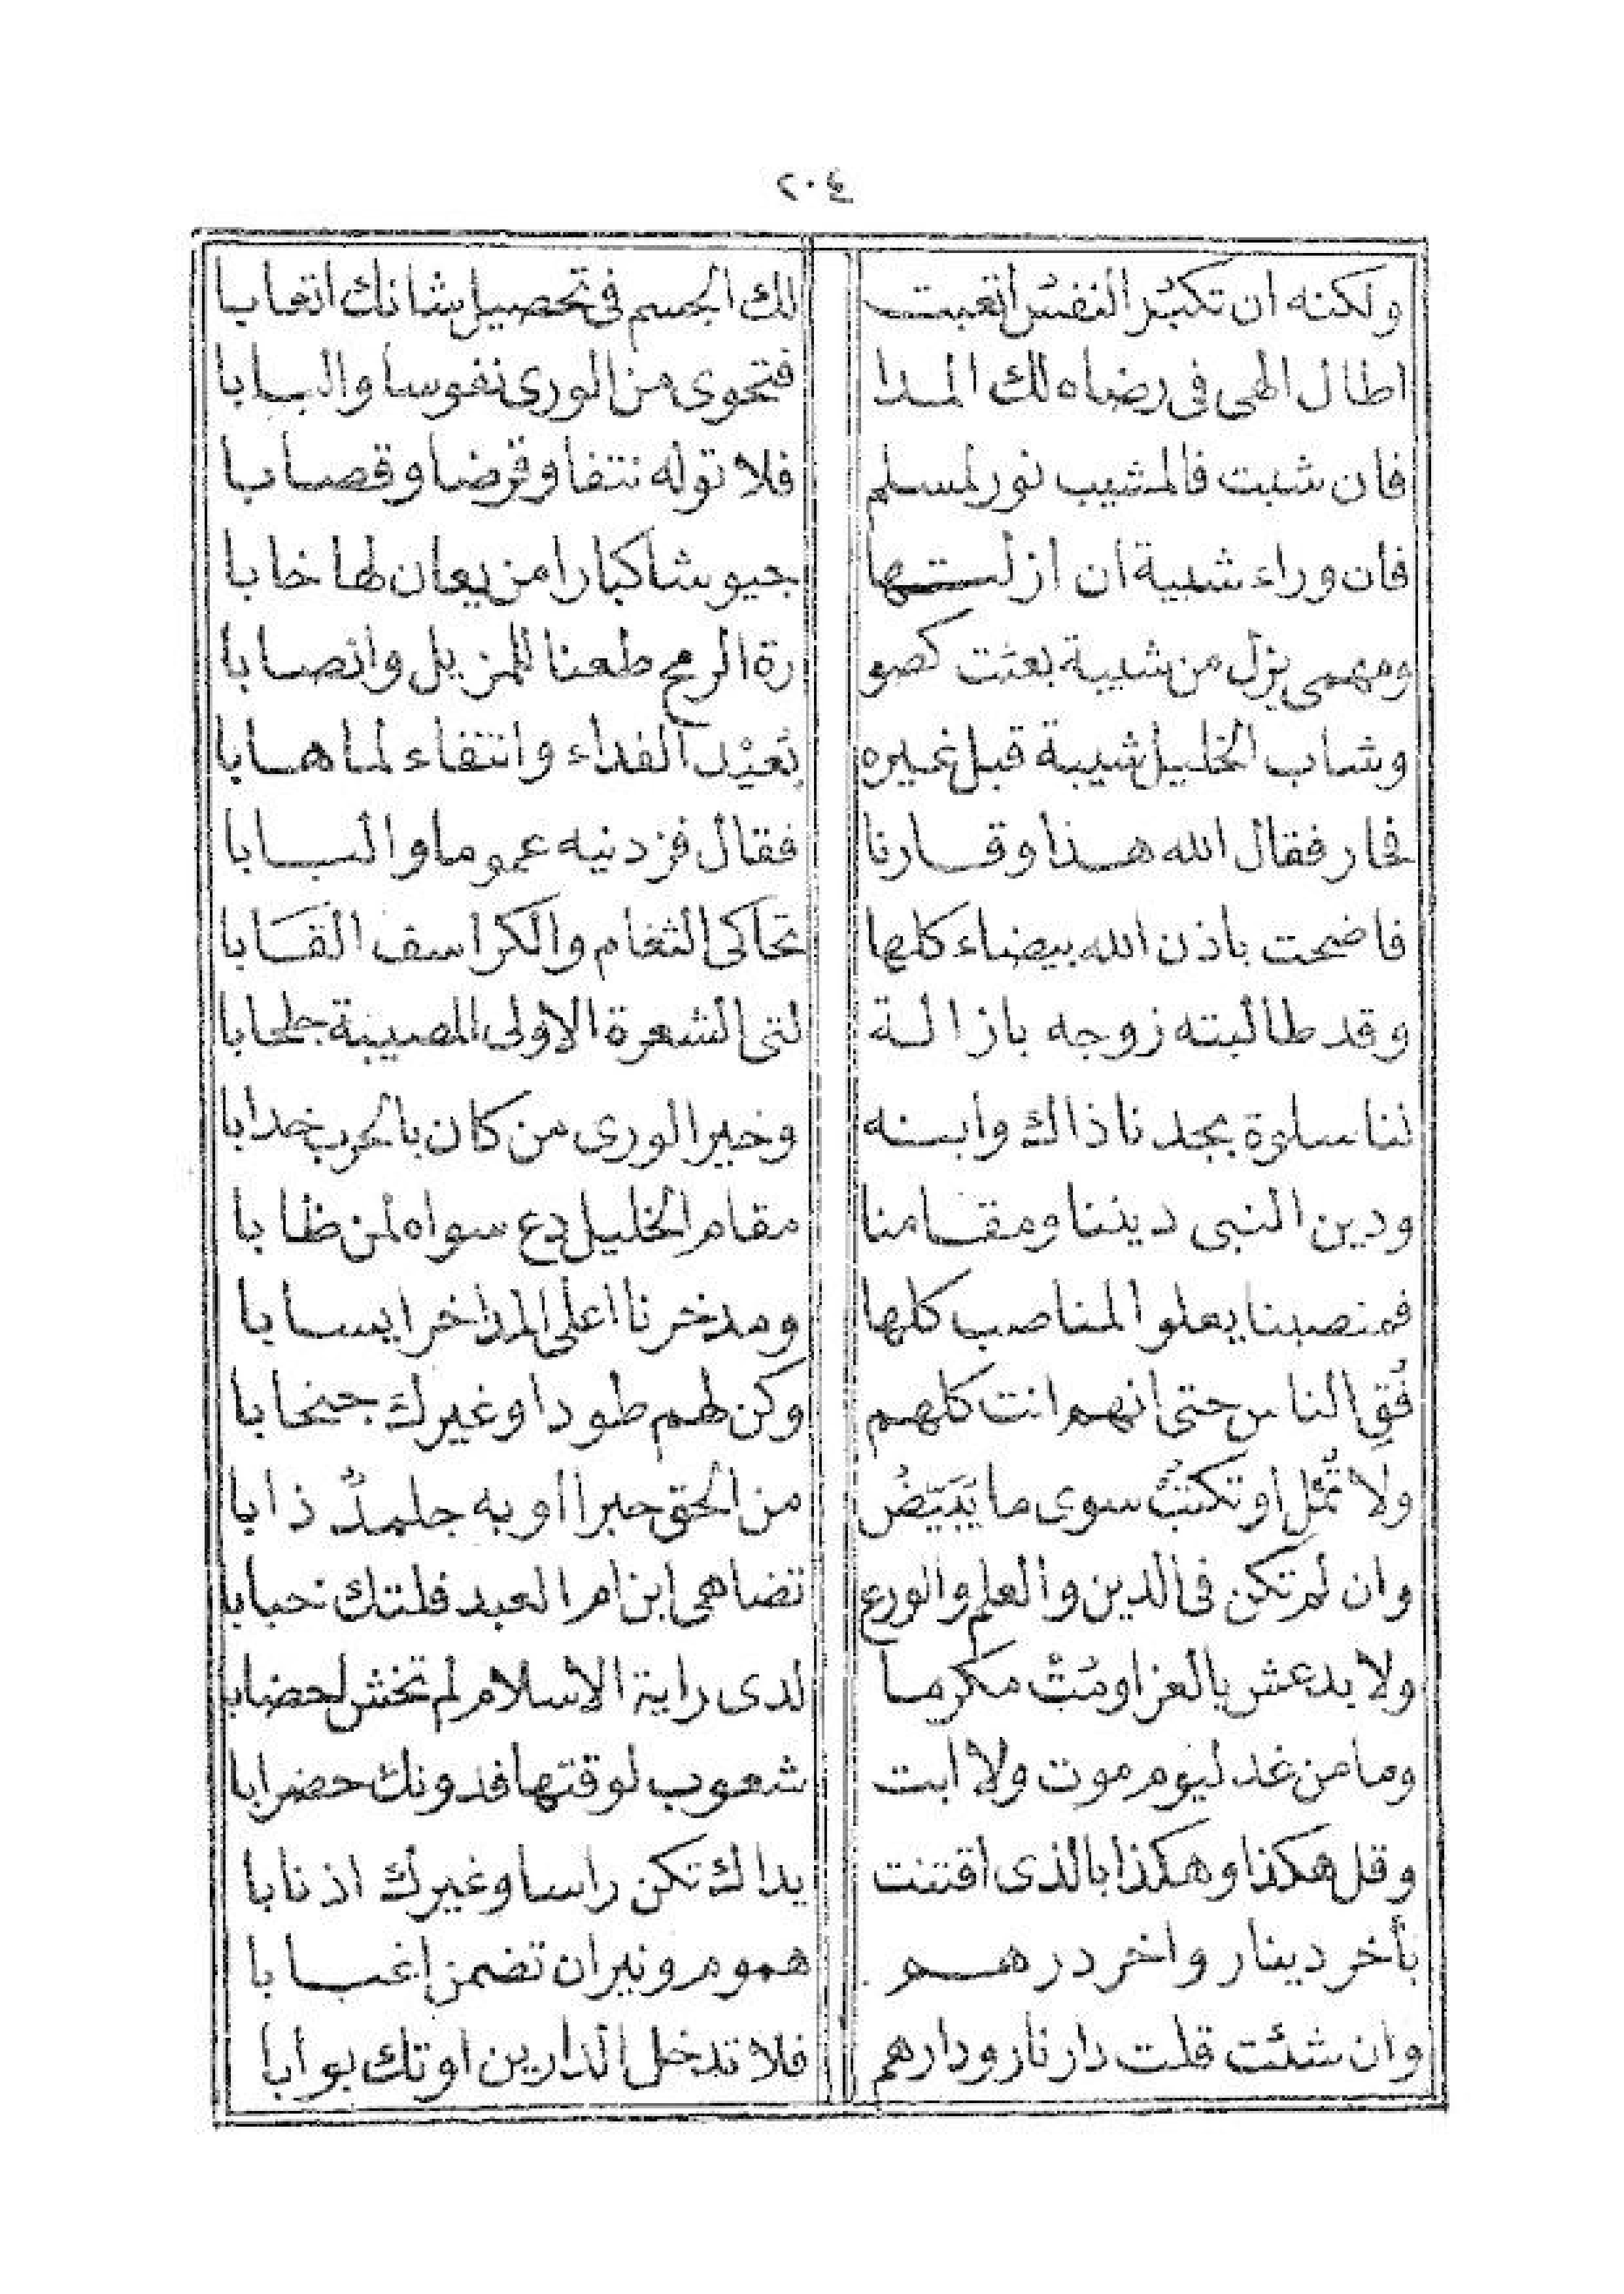 ٢٠٤
ولكنه ان تكبُر النفسُ أتعبت لك الجسم فى تحصيل شانك اتعابا
اطال الهى فى رضاه لك المدا فتحوى من الورى نفوسا والبابا
فان شبت فالمشيب نور لمسلم فلا توله نتفا وقرضا وقصابا
فان وراء شيبة ان ازلتها جيوشا كبارا من يعان لها خابا
ومهمى يزل من شيبة بعثت كصو رة الرمح طعنا للمزيل وانصابا
وشاب الخليل شيبة قبل غيره بُعيْد الفداء وانتفاء لما هابا
فحار فقال الله هذا وقارنا فقال فزدنيه عموما والبابا
فاضحت باذن الله بيضاء كلها تحاكى الثغام والكراسف القَابا
وقد طالبته زوجه بازالة لتى الشعرة الاولى المصيبة جلحابا
لنا سلوة بجدنا ذاك وابنه وخير الورى من كان بالحرب خدابا
ودين النبى ديننا ومقامنا مقام الخليل دع سواه لمن ظابا
فمنصبنا يعلو المناصب كلها ومذخرنا اعلى المذاخر ايسابا
فُقِ الناس حتى انهم انت كلهم وكن لهم طودا وغيرك جنحابا
ولا تُمْلِ او تكتبْ سوى ما يَبيَضُّ من الحق حبرا او به جلمدٌ ذابا
وان لم تكن فى الدين والعلم والورع تضاهى ابن ام العبد فلتك خبابا
ولا بد عش بالعز او مُتْ مكرما لدى راية الاسلام لم تخش لحضابا
وما من غد ليوم موت ولا ابت شعوب لوقتها فدونك حضرابا
وقل هكذا وهكذا بالذى اقتنت يداك تكن راسا وغيرك اذنابا
بأخر دينار واخر درهم هموم ونيران تضمن اغبابا
وان شئت قلت دار نار ودارهم فلا تدخل الدارين او تك بوابا